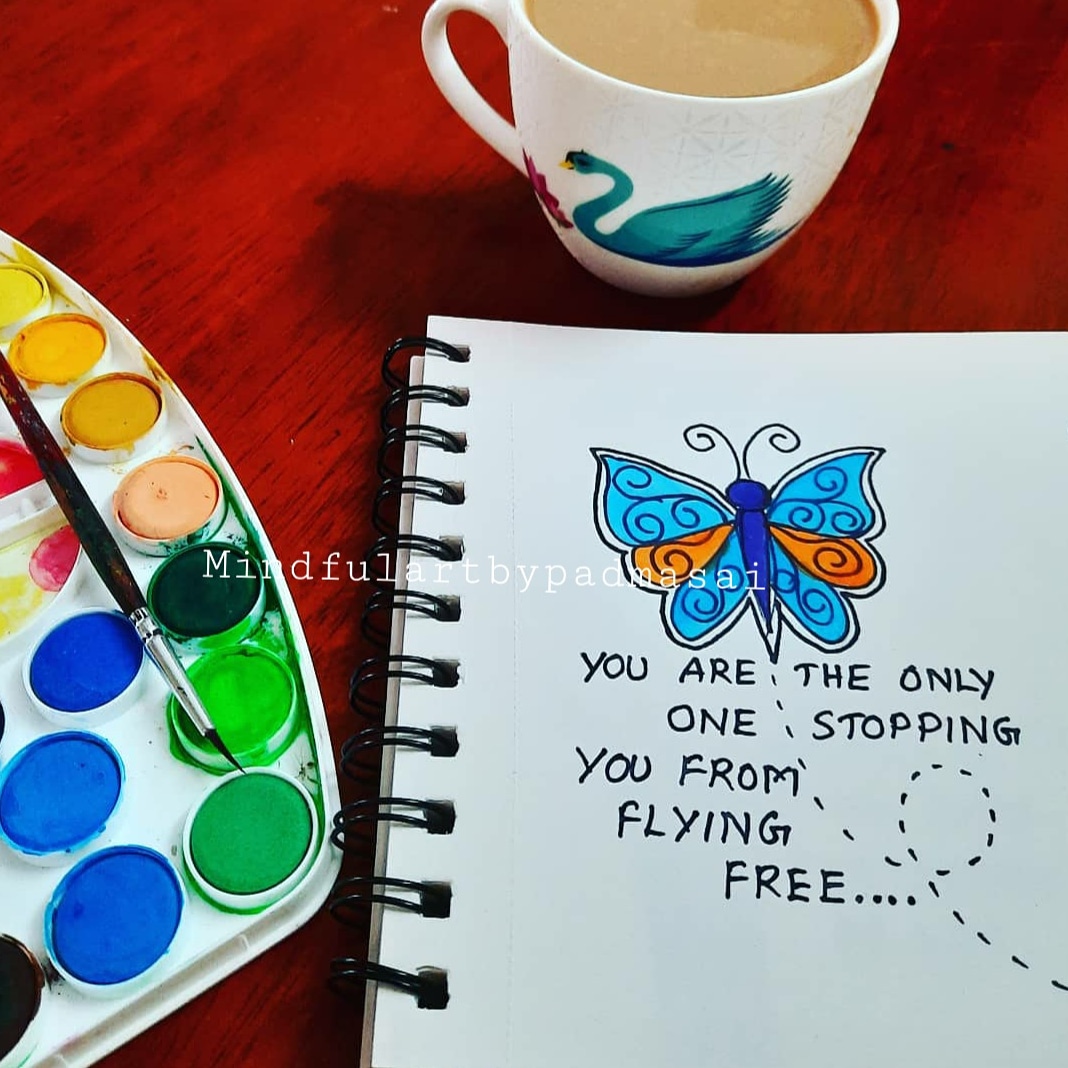 Mindfulartbypadmasai
YOU ARE THE ONLY
ONE STOPPING
YOU FROM
FLYING
FREE....